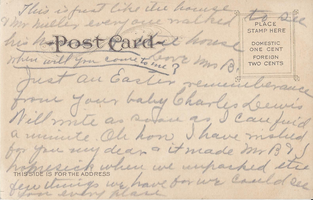 This is just like the house
& Mr Miller everyone rushed to see
his house
Post Card
PLACE
STAMP HERE
DOMESTIC
ONE CENT
FOREIGN
TWO CENTS
when will you come to
love Mrs B.
Just an Easter rememberance
from your baby Charles Lewis
Will write as soon as I can find
a minute. Oh how I have wished
for you my dear & it made Mr B & I
homesick when we unpacked the
few things we have for we could see
THIS SIDE IS FOR THE ADDRESS
your every place